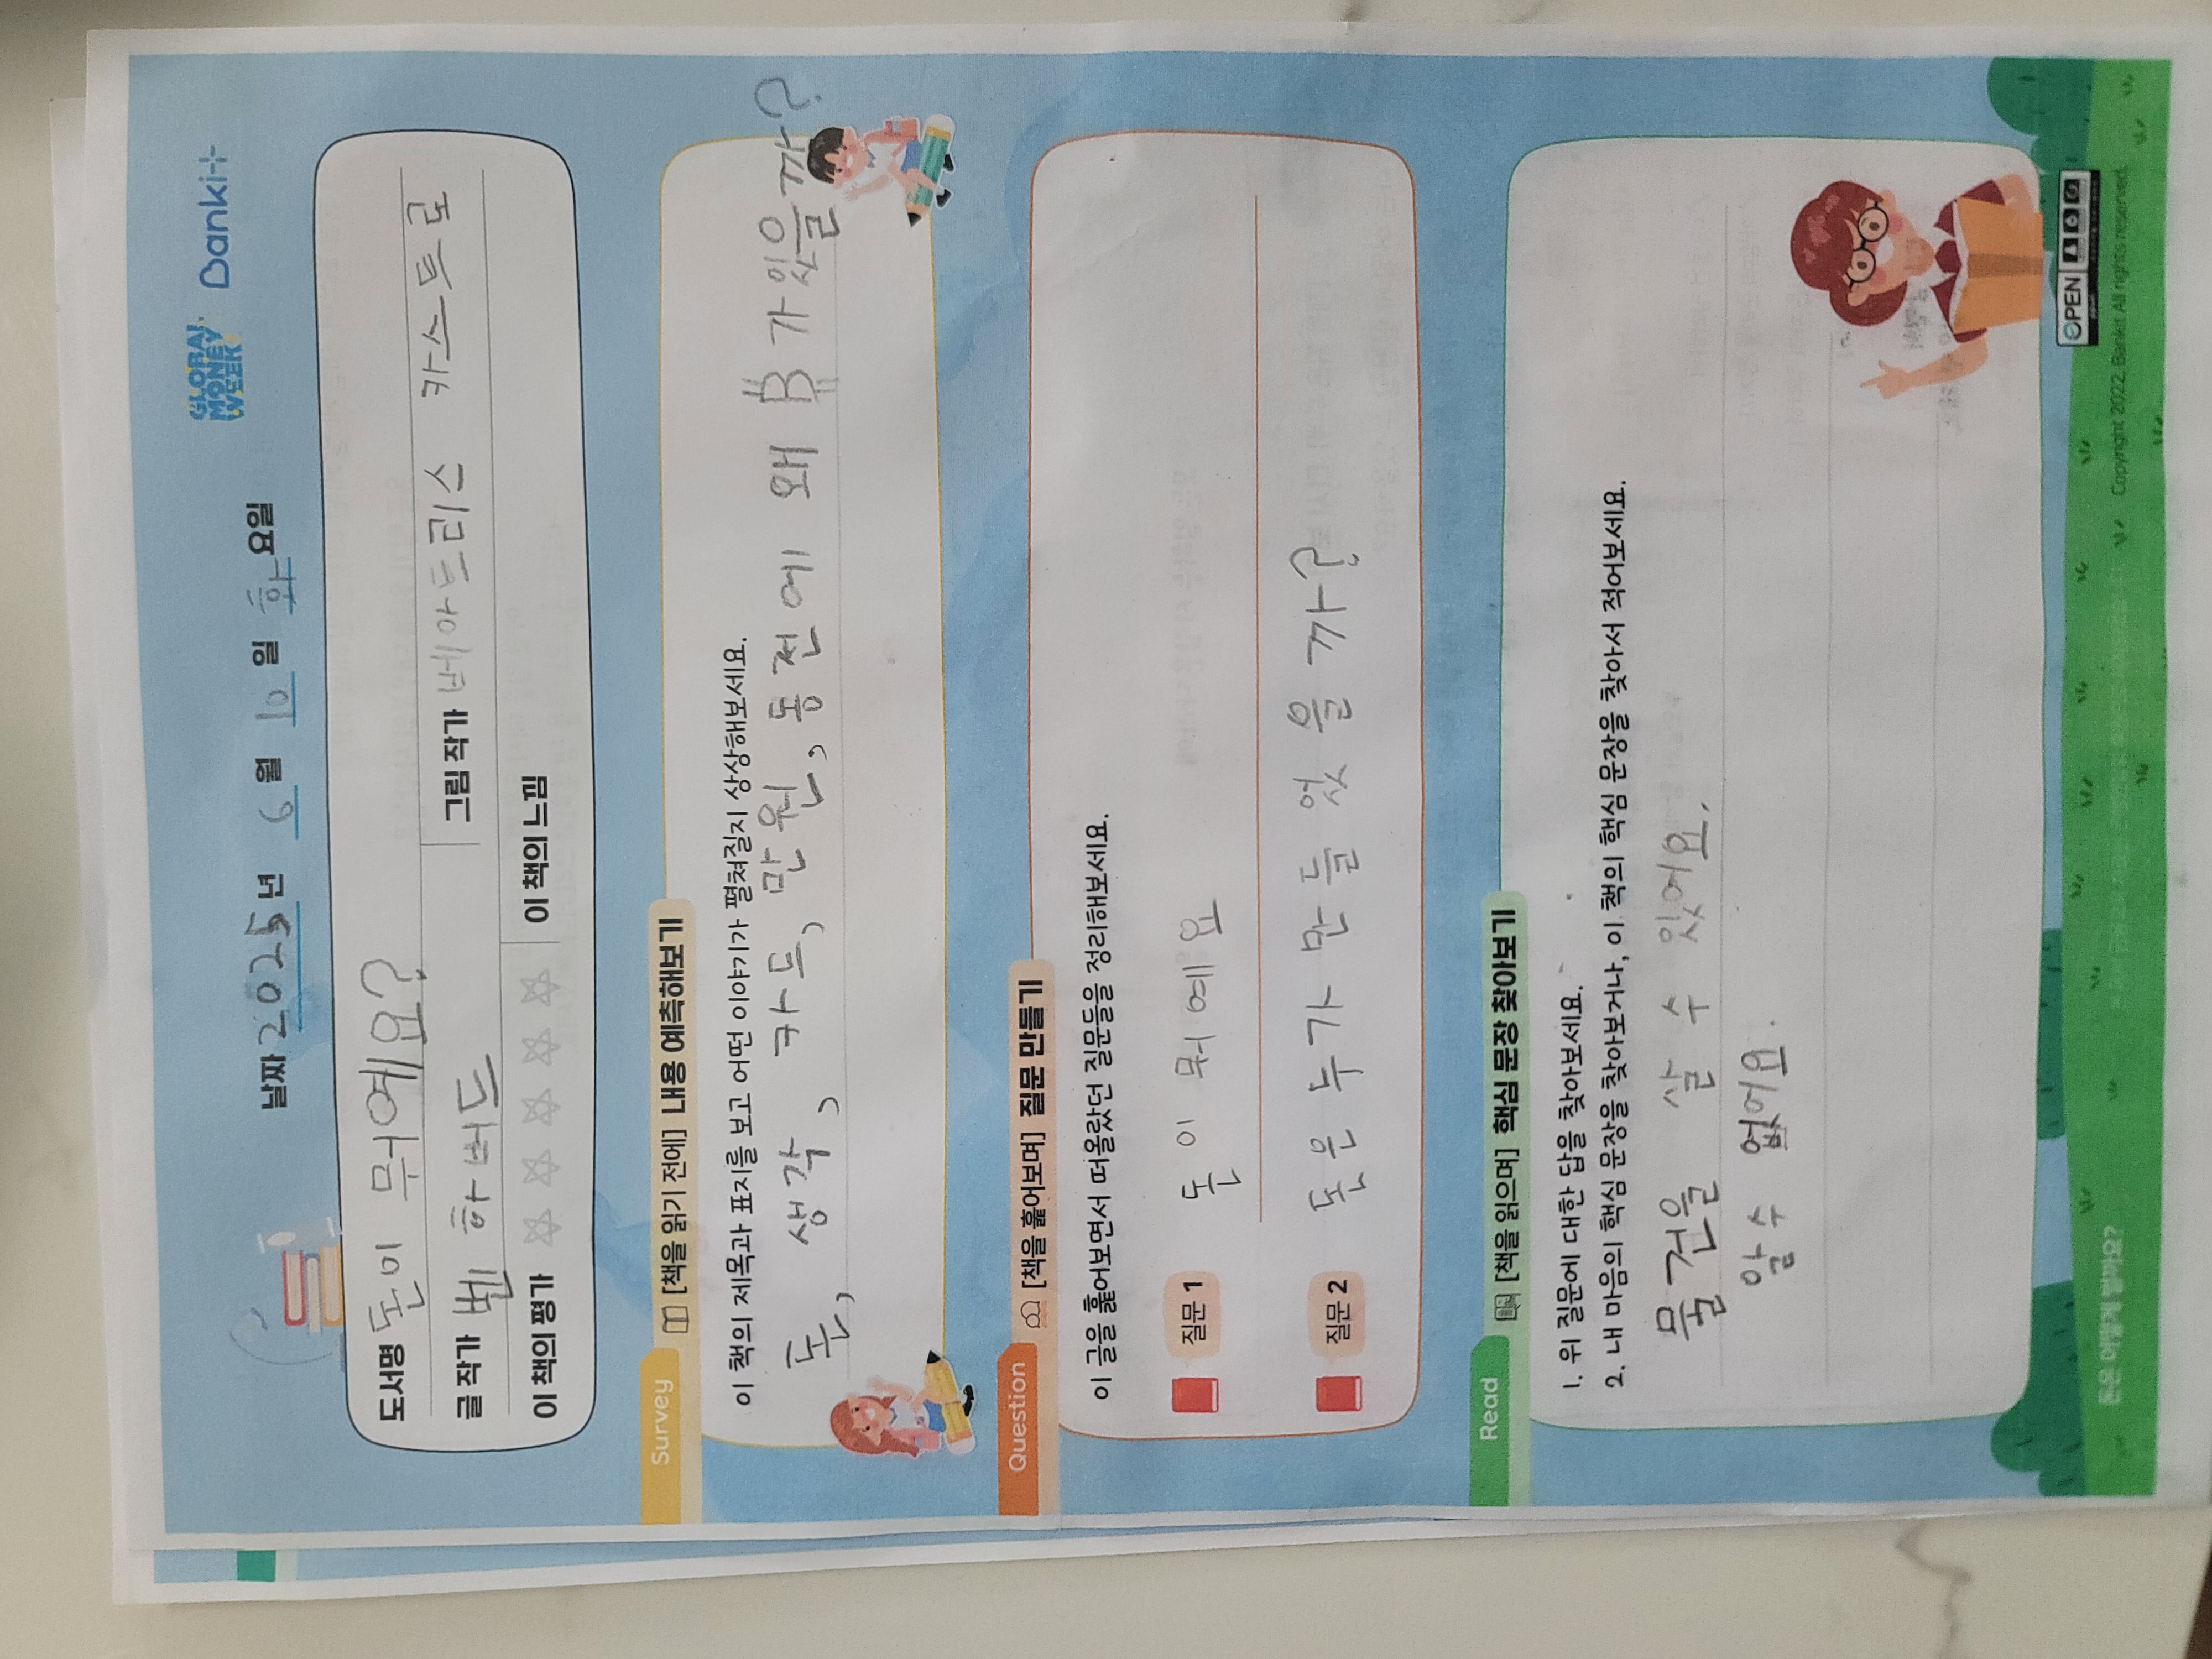 GLOBAL MONEY WEEK Bankit
날짜 2025년 6월 10일 화요일
도서명 돈이 뭐예요?
글 작가 벤 하버드 그림 작가 베아트리스 카스트로
이 책의 평가 ☆☆☆☆☆ 이 책의 느낌
Survey [책을 읽기 전에] 내용 예측해보기
이 책의 제목과 표지를 보고 어떤 이야기가 펼쳐질지 상상해보세요.
돈, 생각, 카드, 만원, 동전에 왜 ₿가있을까?
Question [책을 훑어보며] 질문 만들기
이 글을 훑어보면서 떠올랐던 질문들을 정리해보세요.
질문 1 돈이 뭐예요
질문 2 돈은 누가 만들었을까?
Read [책을 읽으며] 핵심 문장 찾아보기
1. 위 질문에 대한 답을 찾아보세요.
2. 내 마음의 핵심 문장을 찾아보거나, 이 책의 핵심 문장을 찾아서 적어보세요.
물건을 살 수 있어요.
알수 없어요.
OPEN
돈은 어떻게 벌까요?
Copyright 2022. Bankit All rights reserved.